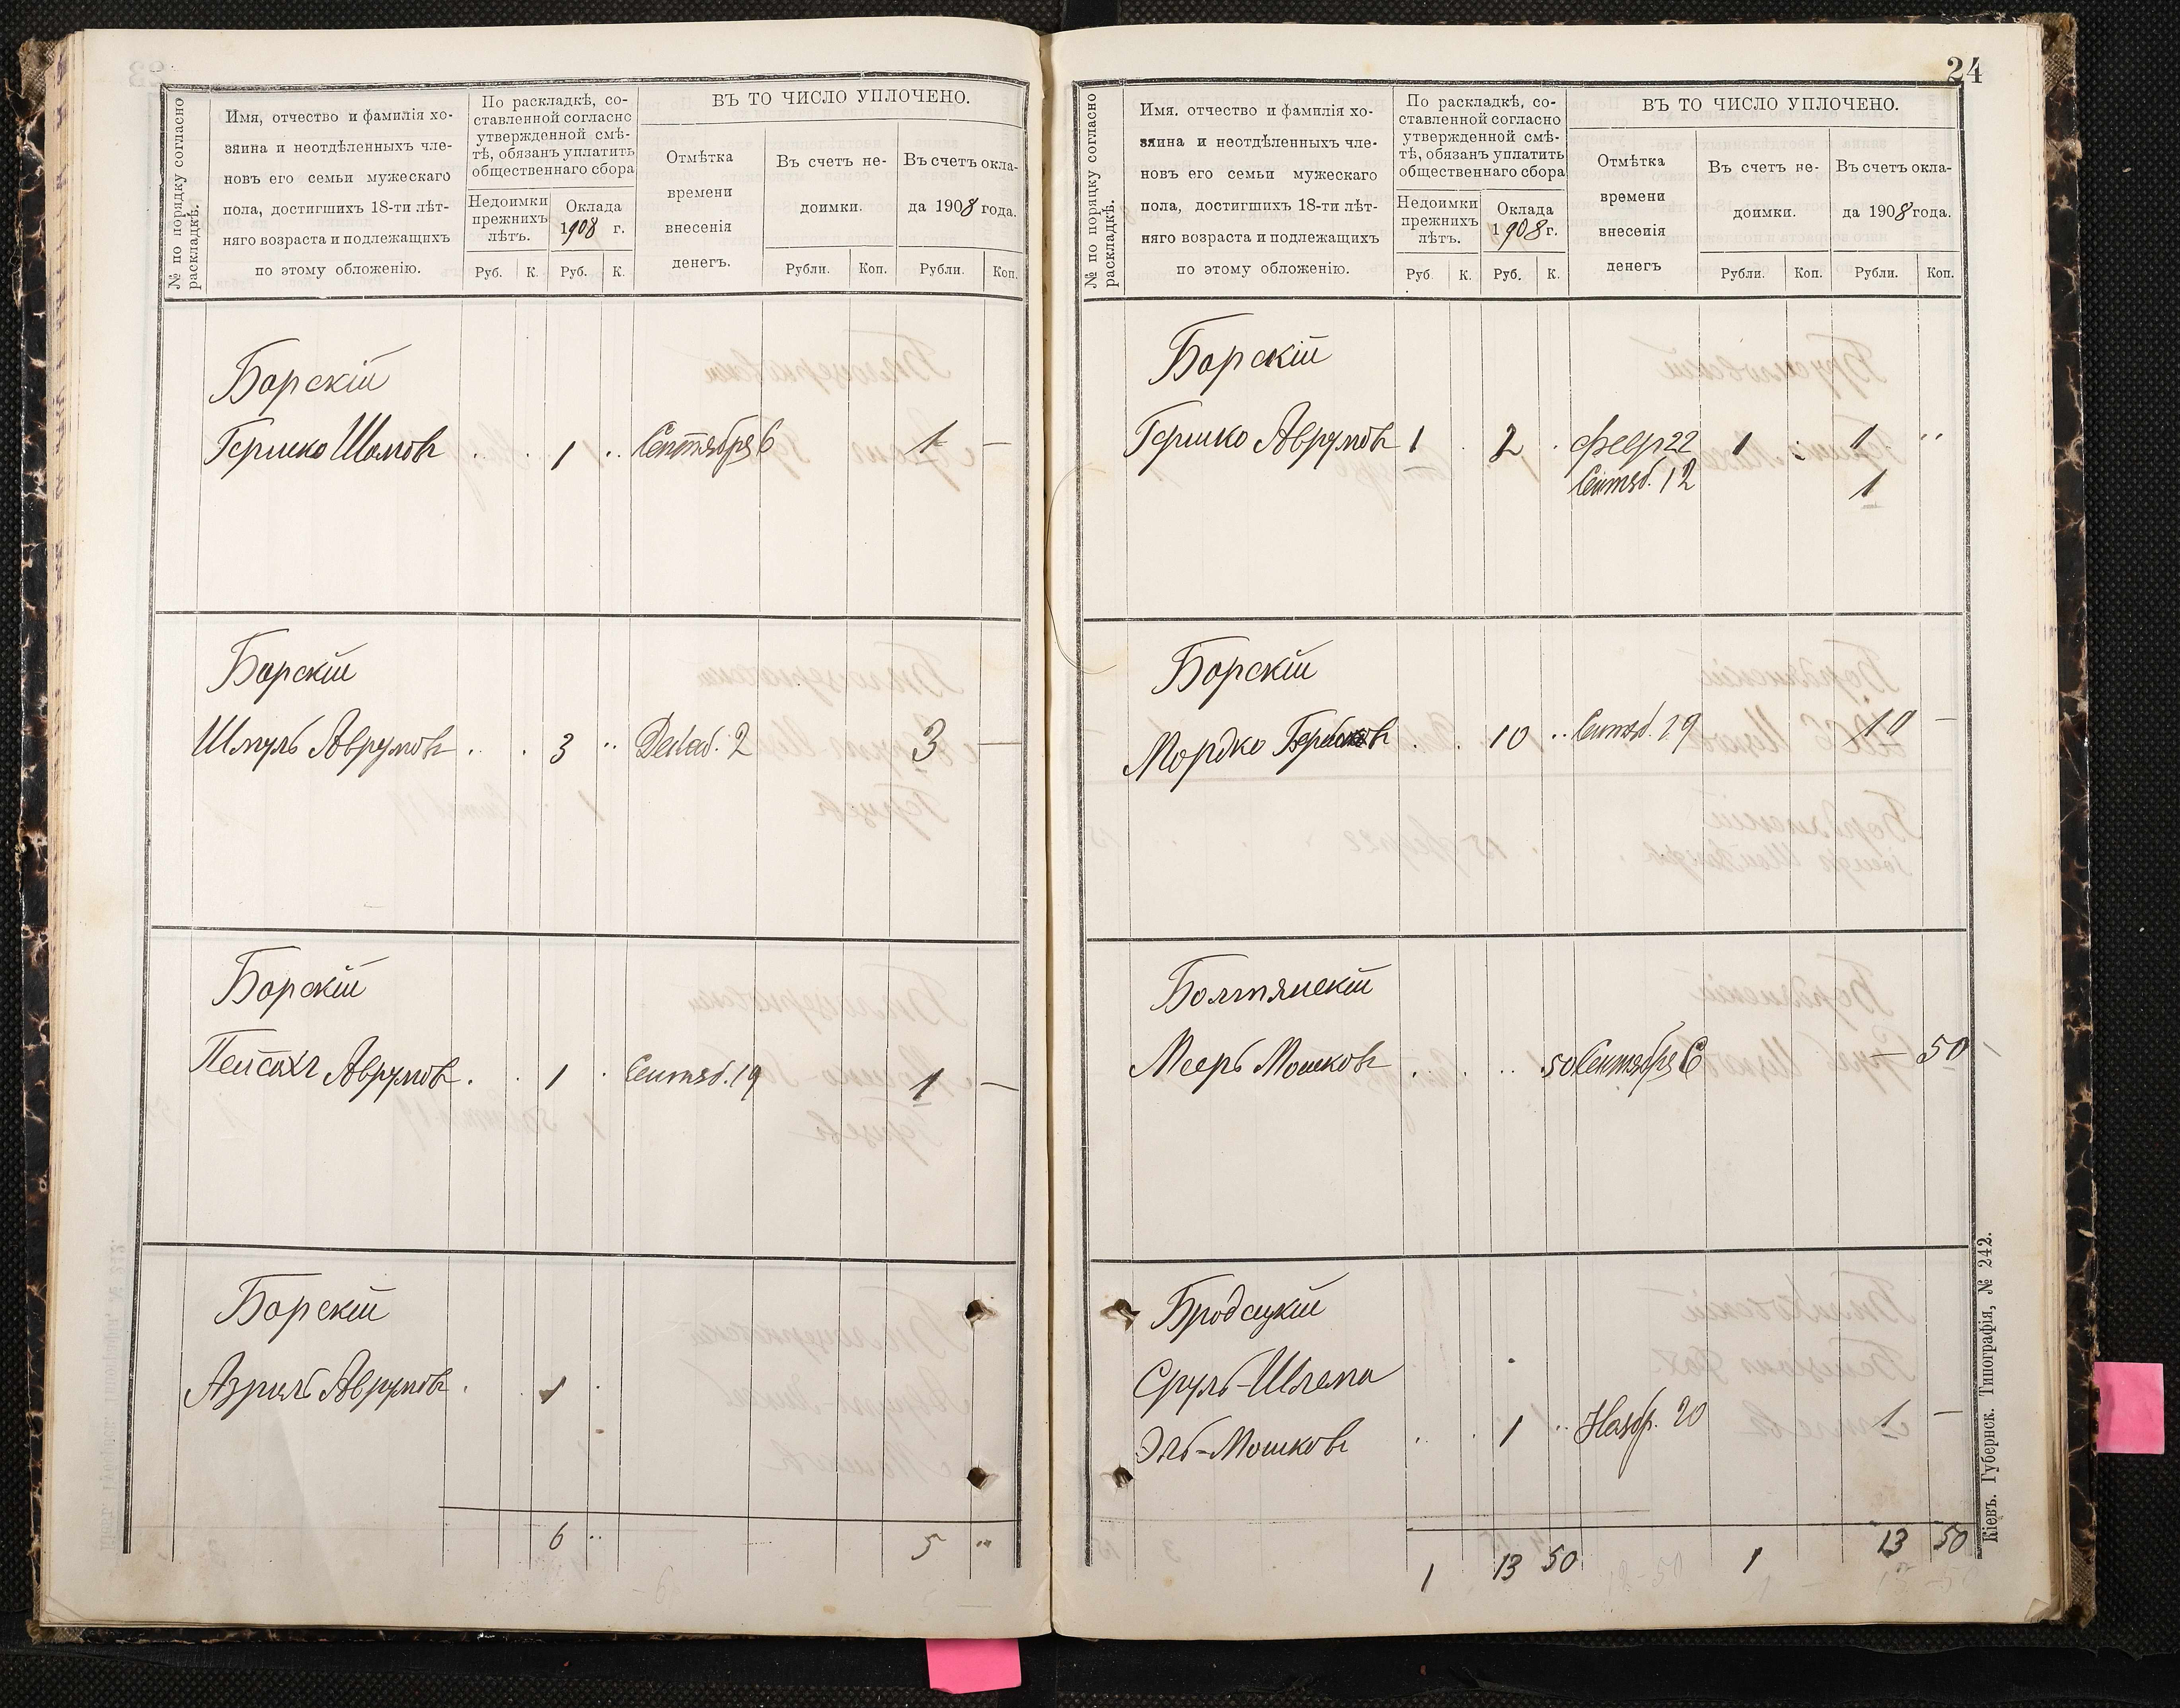 № по порядку согласно
раскладкѣ.
Имя, отчество и фамилія хо-
зяина и неотдѣленныхъ чле-
новъ его семьи мужескаго
пола, достигшихъ 18-ти лѣт-
няго возраста и подлежащихъ
по этому обложенію.
По раскладкѣ, со-
ставленной согласно
утвержденной смѣ-
тѣ, обязанъ уплатить
общественнаго сбора
Недоимки
прежнихъ
лѣтъ.
Оклада
1908 г.
Руб. К. Руб. К.
ВЪ ТО ЧИСЛО УПЛОЧЕНО.
Отмѣтка
времени
внесенія
денегъ.
Въ счетъ не-
доимки.
Въ счетъ окла-
да 1908 года.
Рубли. Коп. Рубли. Коп.
Борскій
Гершко Шамовъ 1 Сентября 6 1 —
Борскій
Шмуль Аврумовъ 3 Декаб. 2 3 —
Борскій
Пейсахъ Аврумовъ 1 Сентяб. 19 1 —
Борскій
Азриль Аврумовъ 1
6 5
24
№ по порядку согласно
раскладкѣ.
Имя, отчество и фамилія хо-
зяина и неотдѣленныхъ чле-
новъ его семьи мужескаго
пола, достигшихъ 18-ти лѣт-
няго возраста и подлежащихъ
по этому обложенію.
По раскладкѣ, со-
ставленной согласно
утвержденной смѣ-
тѣ, обязанъ уплатить
общественнаго сбора
Недоимки
прежнихъ
лѣтъ.
Оклада
1908 г.
Руб. К. Руб. К.
ВЪ ТО ЧИСЛО УПЛОЧЕНО.
Отмѣтка
времени
внесенія
денегъ
Въ счетъ не-
доимки.
Въ счетъ окла-
да 1908 года.
Рубли. Коп. Рубли. Коп.
Борскій
Гершко Аврумовъ 1 2 февр 22 1 1
Сентяб. 12 1
Борскій
Мордко 10 Сентяб. 19 10 —
Болтянскій
Мееръ Мошковъ 50 Сентября 6 — 50
Бродсцкій
Сруль-Шлема
Эль-Мошковъ 1 Нояб. 20 1 —
1 13 50 1 13 50
Кіевъ. Губернск. Типографія, № 242.